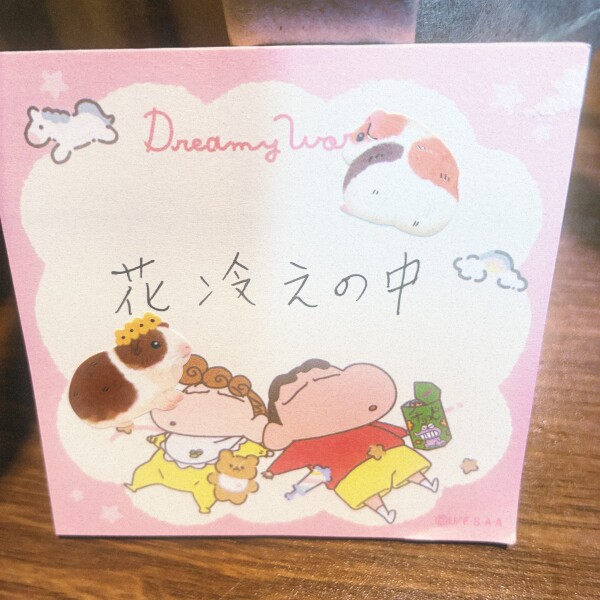 Dreamy Wor
花冷えの中